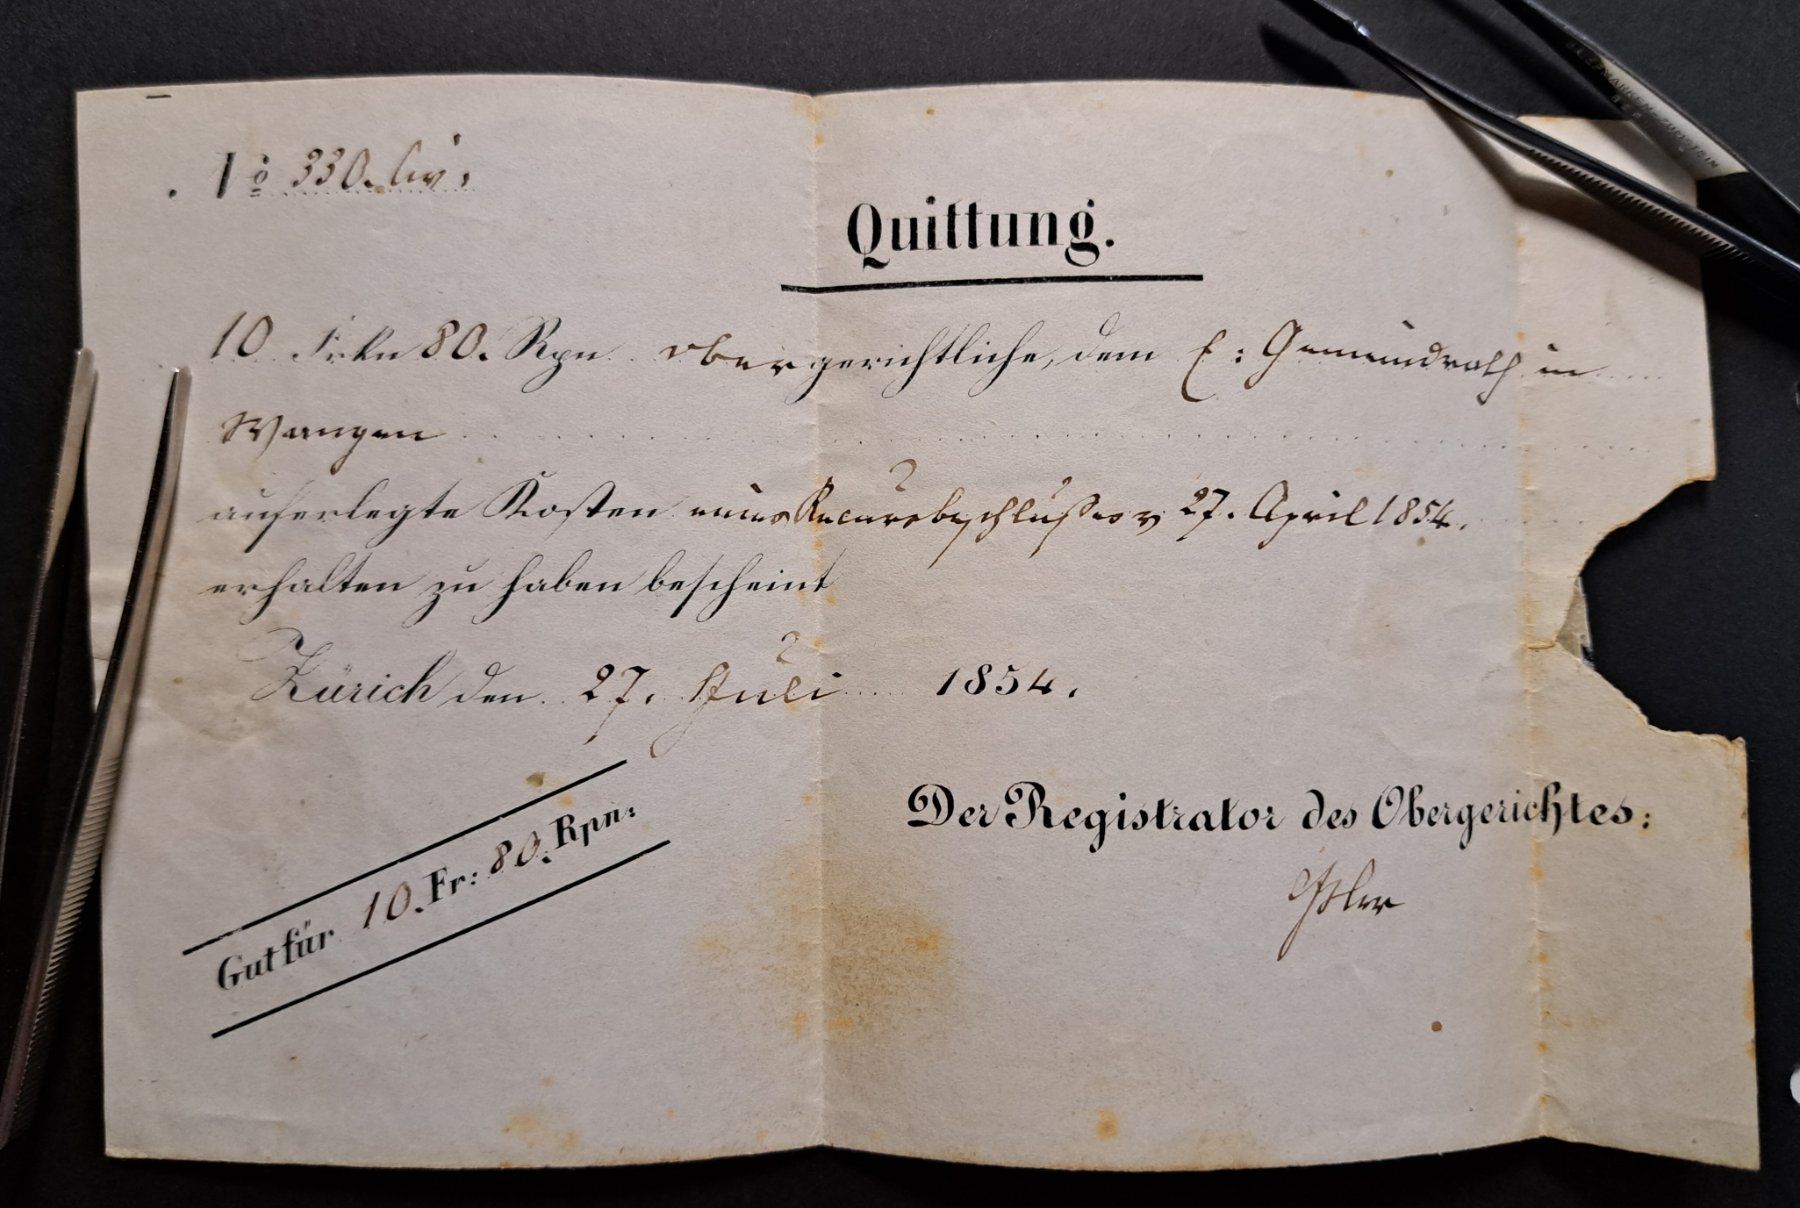 No 330. Civ.
Quittung.
10 Frkn 80. Rpn obergerichtliche, dem E: Gemeindrath in
Wangen
auferlegte Kosten eines Recursbeschlußes v 27. April 1854.
erhalten zu haben bescheint
Zürich den 27. Juli 1854.
Gut für 10. Fr: 80. Rpn:
Der Registrator des Obergerichtes: